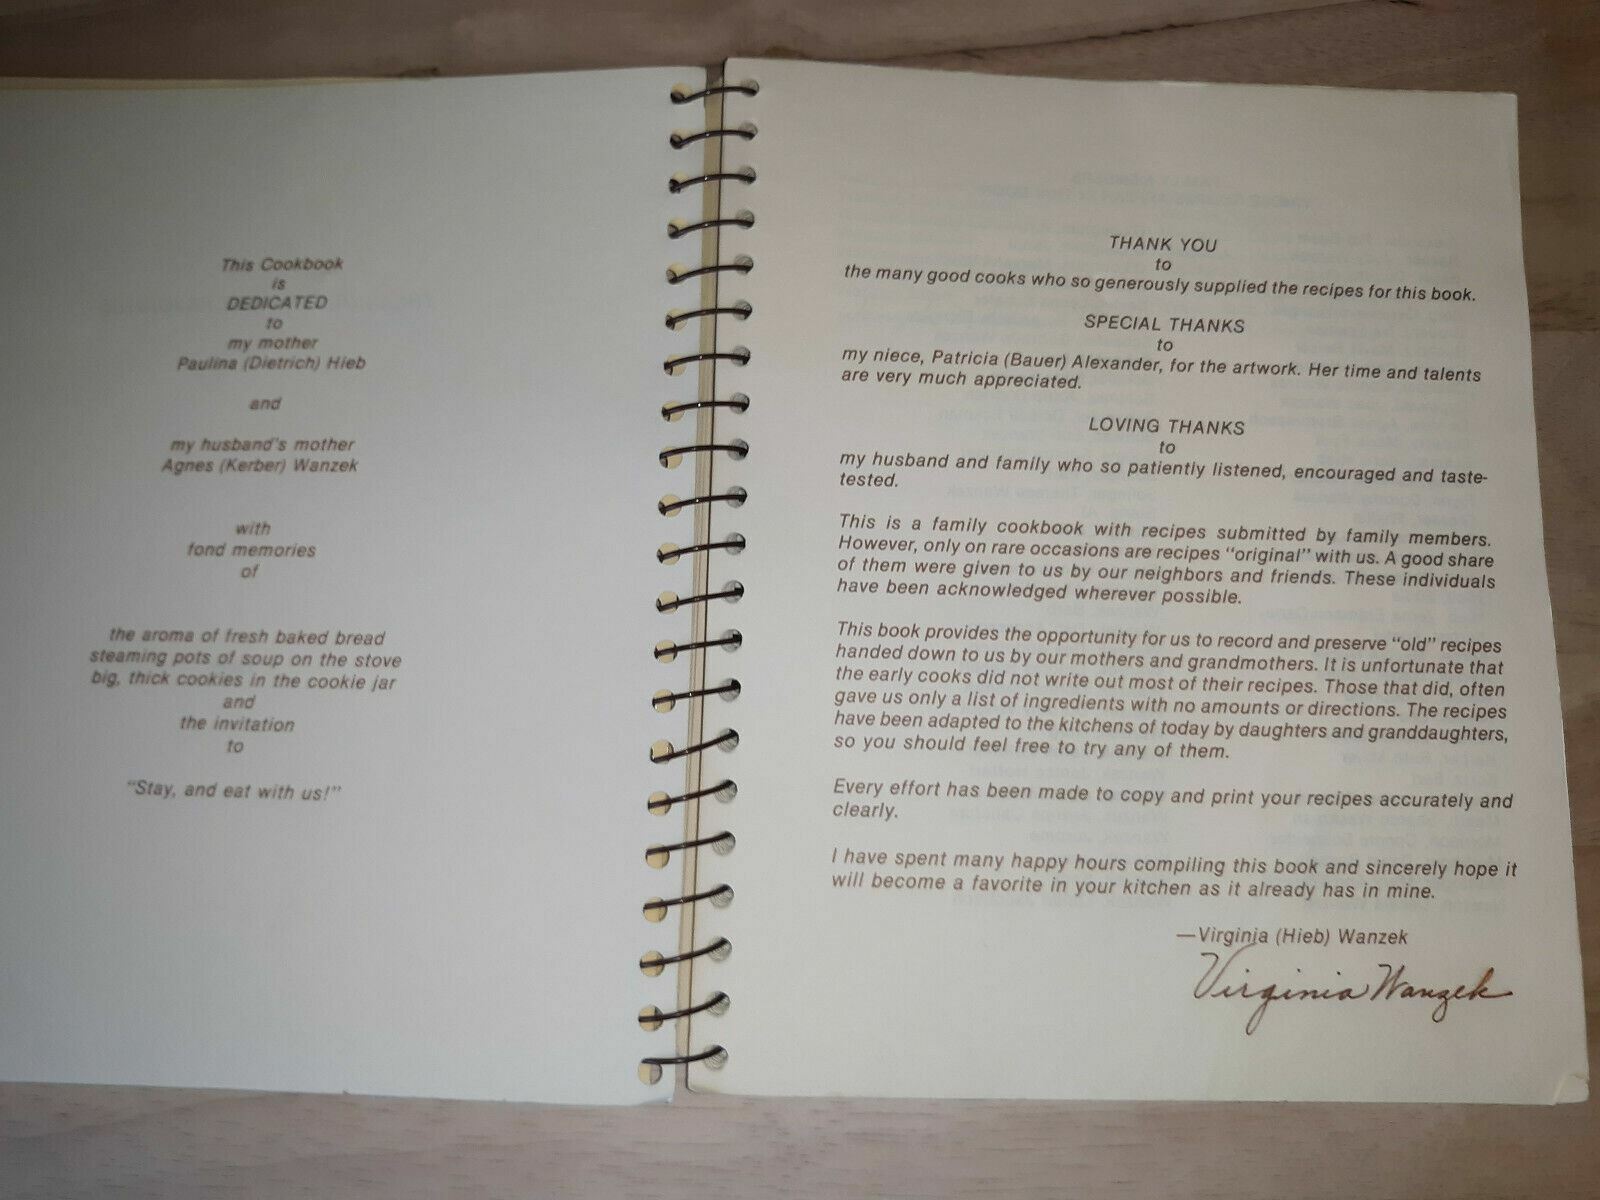 This Cookbook
is
DEDICATED
to
my mother
Paulina (Dietrich) Hieb
and
my husband's mother
Agnes (Kerber) Wanzek
with
fond memories
of
the aroma of fresh baked bread
steaming pots of soup on the stove
big, thick cookies in the cookie jar
and
the invitation
to
"Stay, and eat with us!"
THANK YOU
to
the many good cooks who so generously supplied the recipes for this book.
SPECIAL THANKS
to
my niece, Patricia (Bauer) Alexander, for the artwork. Her time and talents
are very much appreciated.
LOVING THANKS
to
my husband and family who so patiently listened, encouraged and taste-
tested.
This is a family cookbook with recipes submitted by family members.
However, only on rare occasions are recipes "original" with us. A good share
of them were given to us by our neighbors and friends. These individuals
have been acknowledged wherever possible.
This book provides the opportunity for us to record and preserve "old" recipes
handed down to us by our mothers and grandmothers. It is unfortunate that
the early cooks did not write out most of their recipes. Those that did, often
gave us only a list of ingredients with no amounts or directions. The recipes
have been adapted to the kitchens of today by daughters and granddaughters,
so you should feel free to try any of them.
Every effort has been made to copy and print your recipes accurately and
clearly.
I have spent many happy hours compiling this book and sincerely hope it
will become a favorite in your kitchen as it already has in mine.
—Virginia (Hieb) Wanzek
Virginia Wanzek